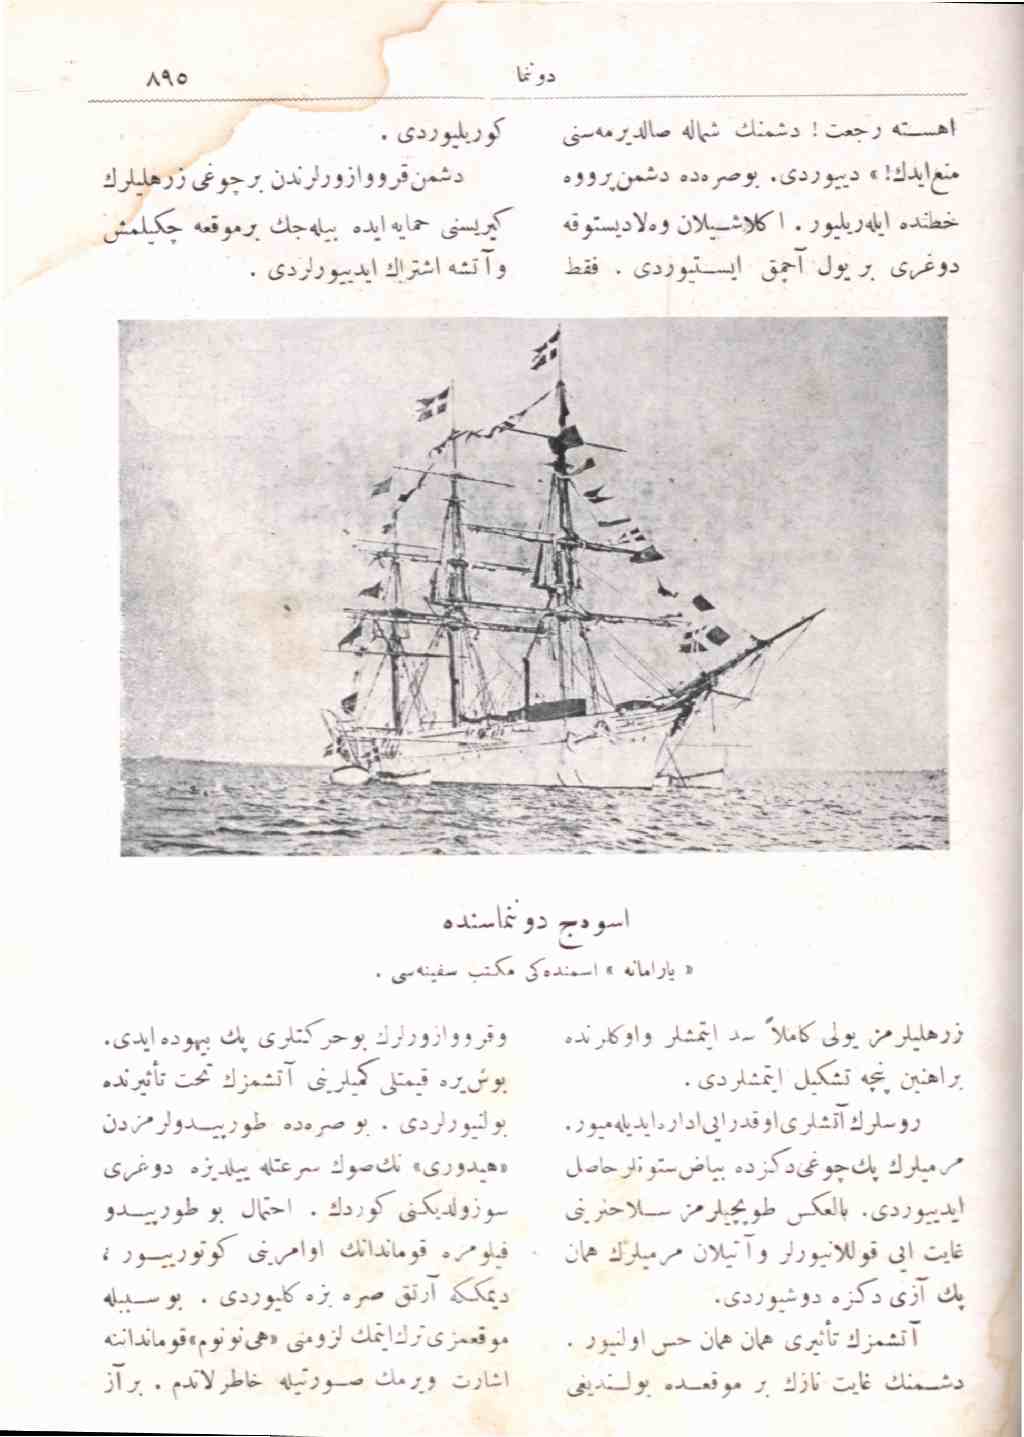 ٨٩٥
دوننما
اهسته رجعت! دشمنك شماله صالديرمه‌سنى
منع ايدك!» ديييوردى. بوصره‌ده دشمن پرووه
خطنده ايله‌ريليور. اكلاشيلان وه‌لاديستوقه
دوغرى بر يول آچمق ايستيوردى. فقط
كوريليوردى.
دشمن قرووازورلرندن بر چوغى زرهليلرك
كيريسنى حمايه ايده بيله‌جك بر موقعه چكيلمش
و آتشه اشتراك ايدييورلردى.
اسوه‌ج دوننماسنده
« يارامانه » اسمنده‌كى مكتب سفينه‌سى.
زرهليلرمز يولى كاملاً سد ايتمشلر واوكلرنده
بر اهنين پنچه تشكيل ايتمشلردى.
روسلرك آتشلرى اوقدر ايى اداره ايديله‌ميور.
مرميلرك پك چوغى دكزده بياض ستونلر حاصل
ايدييوردى. بالعكس طوپچيلرمز سلاحلرينى
غايت ايى قوللانيورلر و آتيلان مرميلرك همان
پك آزى دكزه دوشيوردى.
آتشمزك تأثيرى همان همان حس اولنيور.
دشمنك غايت نازك بر موقعده بولنديغى
وقرووازورلرك بوحركتلرى پك بيهوده ايدى.
بوش يره قيمتلى كميلرينى آتشمزك تحت تأثيرنده
بولنيورلردى. بو صره‌ده طورپيدولرمزدن
«هيدورى» نك صوك سرعتله ييلديزه دوغرى
سوزولديكنى كوردك. احتمال بو طورپيدو
فيلومزه قوماندانك اوامرينى كوتورييور ؛
ديمككه آرتق صره بزه كليوردى. بو سببله
موقعمزى ترك ايتمك لزومنى «هى نو نوم» قوماندانه
اشارت ويرمك صورتيله خاطرلاتدم. بر آز